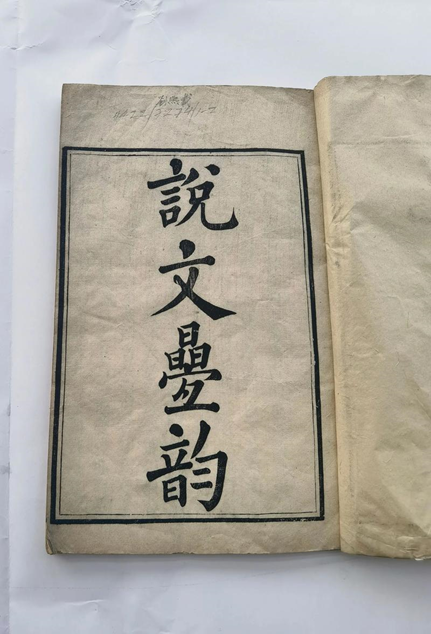 說文疊韵